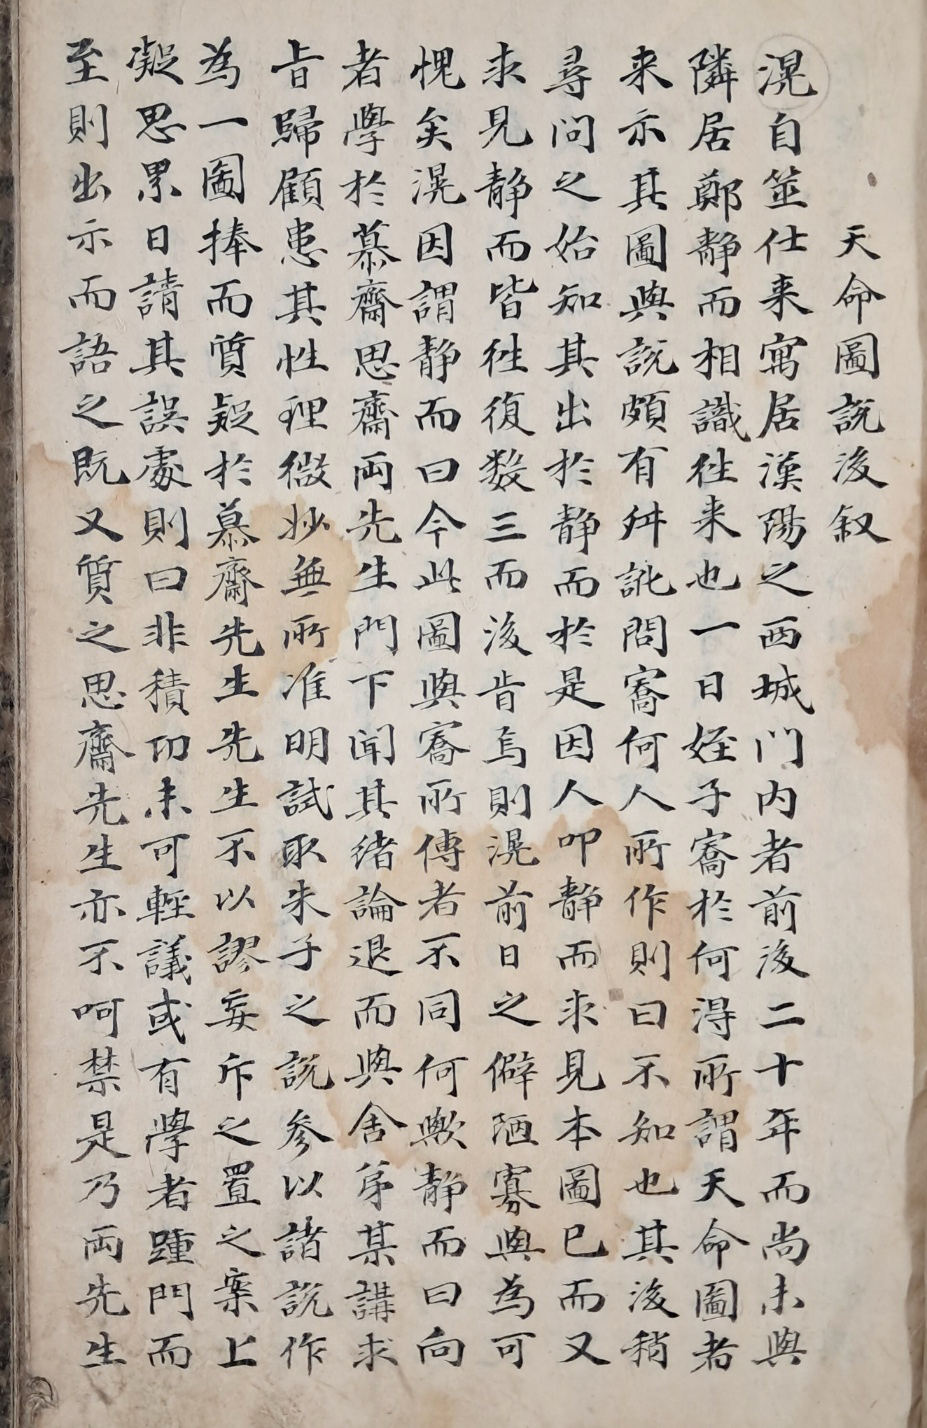 天命圖說後叙
滉自筮仕来寓居漢陽之西城门内者前後二十年而尚未與
隣居鄭静而相識徃来也一日姪子𡩖於何得所謂天命圖者
来示其圖與說頗有舛訛問𡩖何人所作則曰不知也其後稍
尋问之始知其出於静而於是因人叩静而求見本圖已而又
求見静而皆徃復数三而後肯焉則滉前日之僻陋寡與為可
愧矣滉因謂静而曰今此圖與𡩖所傳者不同何歟静而曰向
者學於慕齋思齋两先生門下闻其绪論退而與舍苐某講求
㫖歸顧患其性理微妙無所准明試取朱子之說参以諸說作
為一圖捧而質疑於慕齋先生先生不以謬妄斥之置之案上
凝思累日請其誤處則曰非積功未可輕議或有學者踵門而
至則出示而語之既又質之思齋先生亦不呵禁是乃两先生